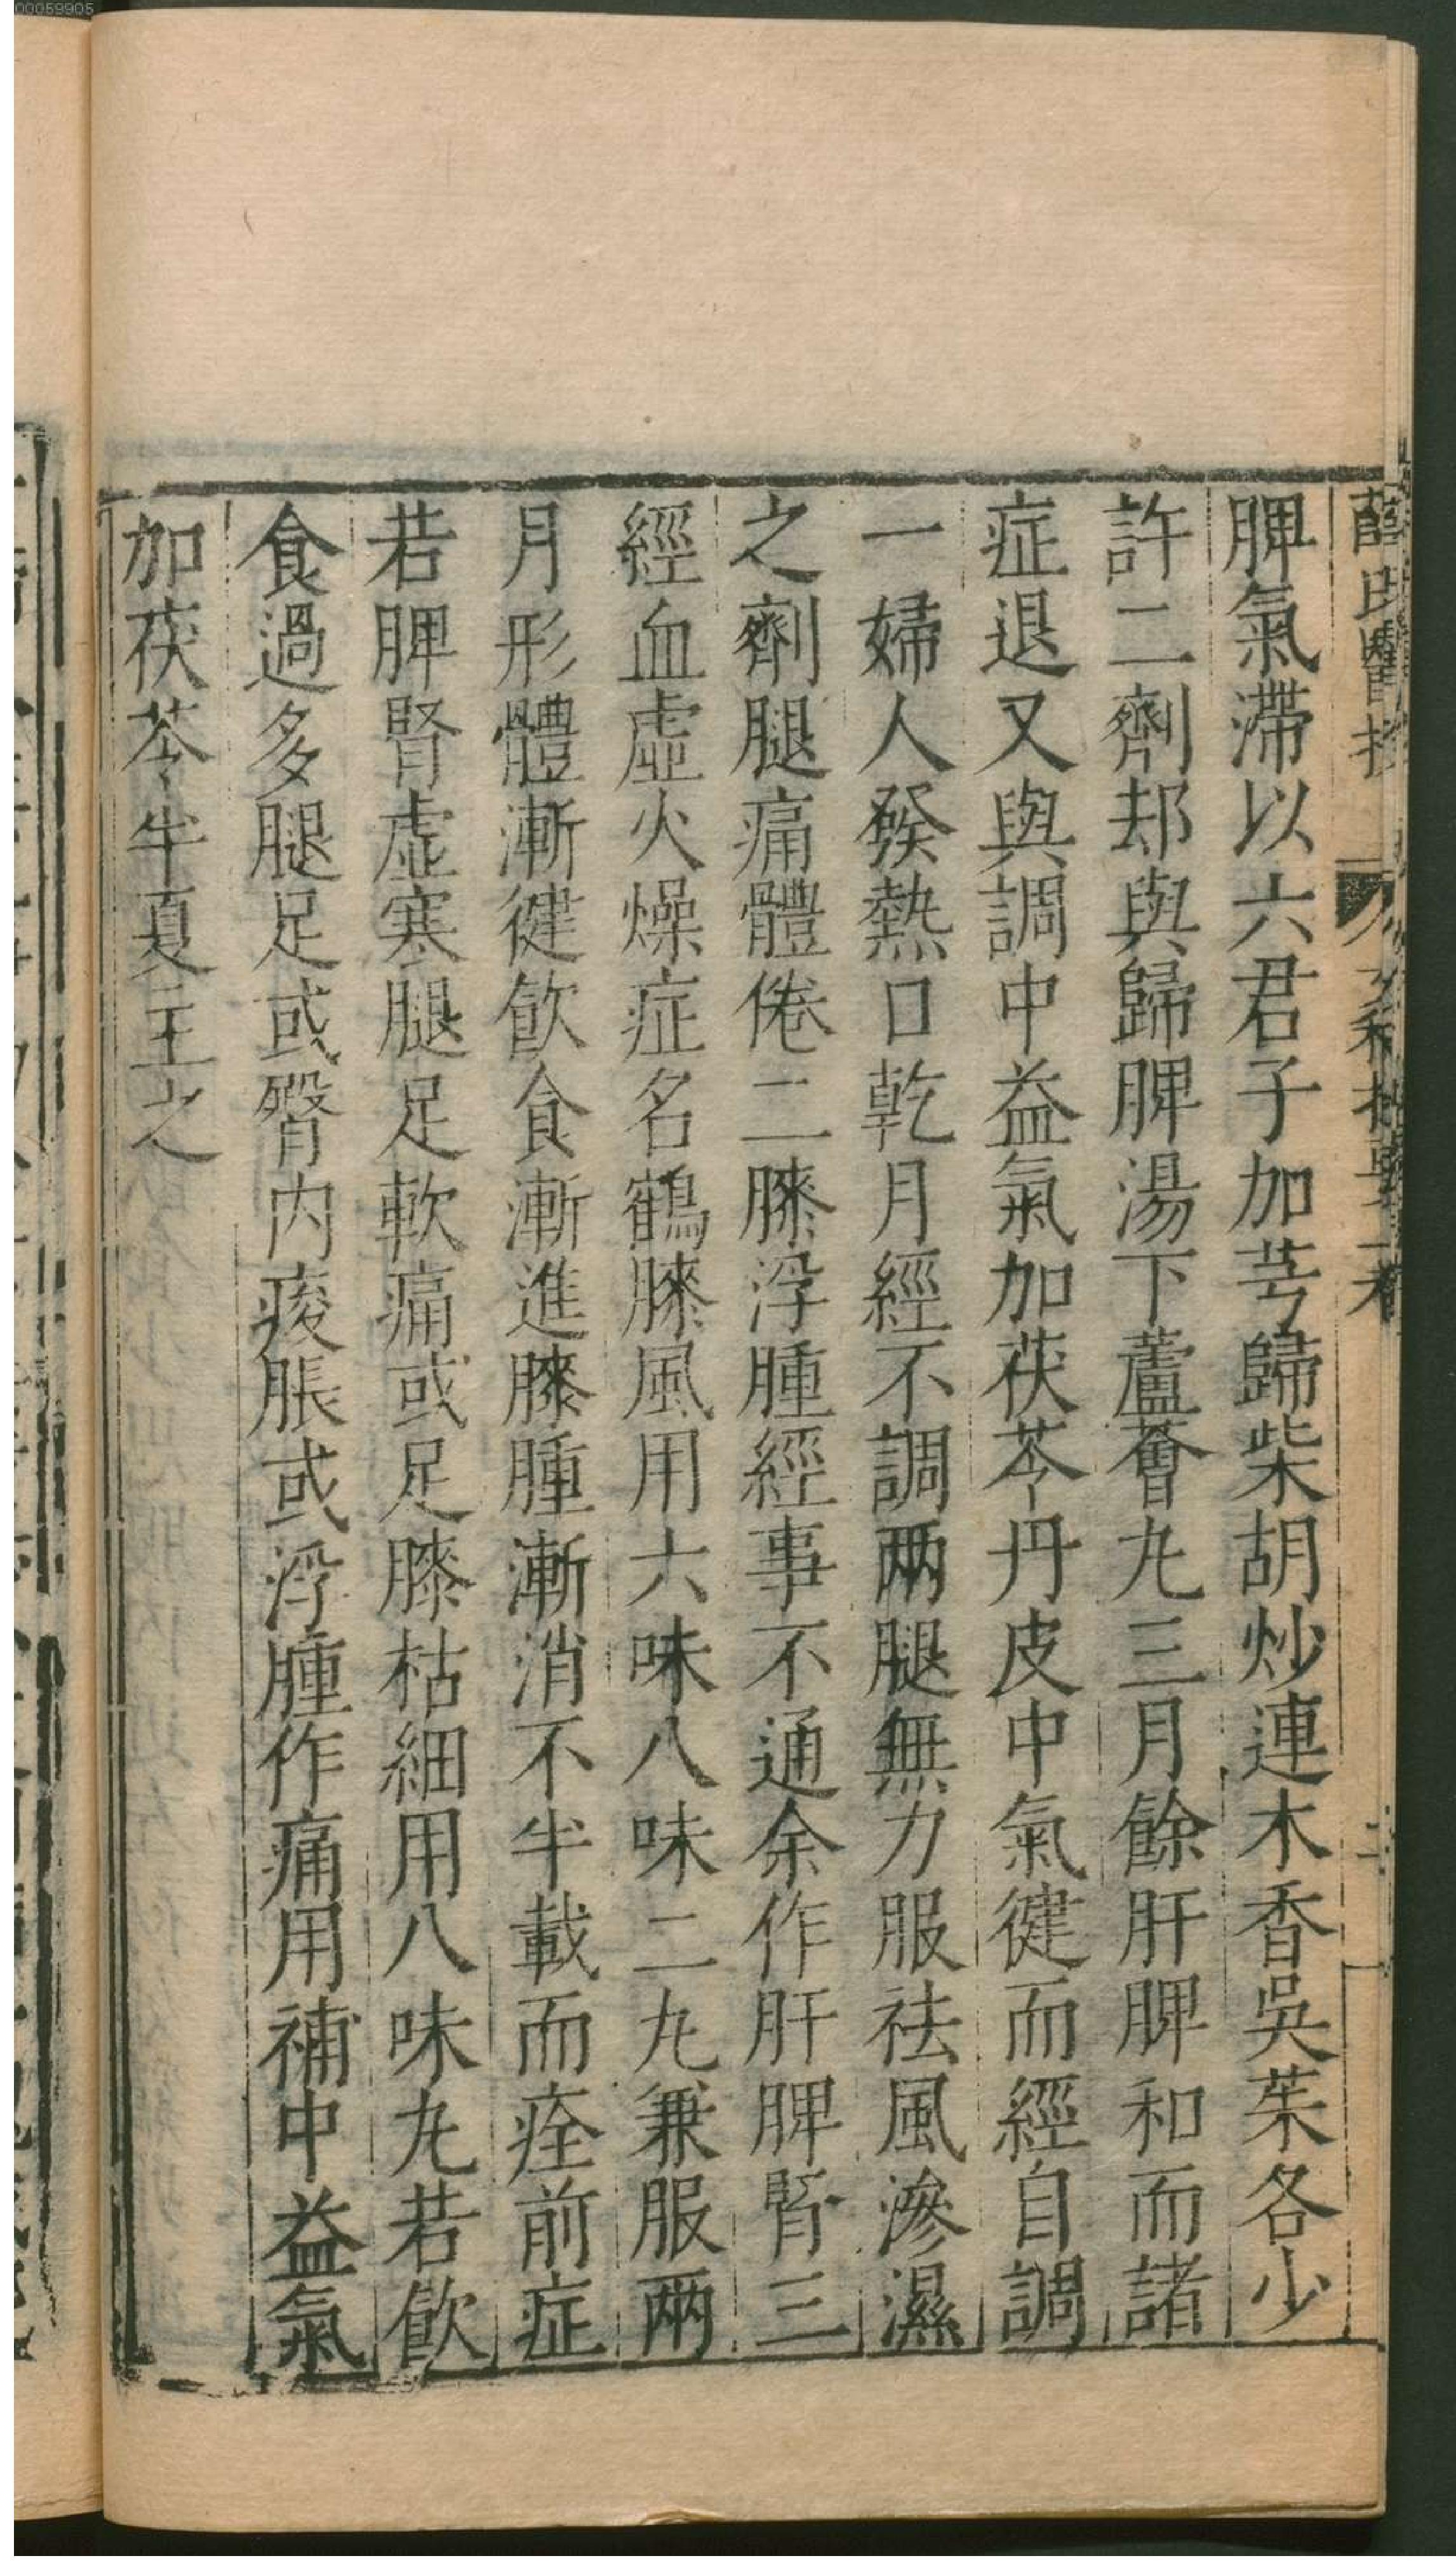 00059905
脾氣滯以六君子加芎歸柴胡炒連木香吳茱各少
許二劑却與歸脾湯下蘆薈丸三月餘肝脾和而諸
症退又與調中益氣加茯苓丹皮中氣徤而經自調
一婦人發熱口乾月經不調两腿無力服袪風滲濕
之劑腿痛體倦二膝浮腫經事不通余作肝脾腎三
經血虛火燥症名鶴膝風用六味八味二丸兼服两
月形體漸徤飮食漸進膝腫漸消不半載而痊前症
若脾腎虛寒腿足軟痛或足膝枯細用八味丸若飮
食過多腿足或臀内痠脹或浮腫作痛用補中益氣
加茯苓半夏主之